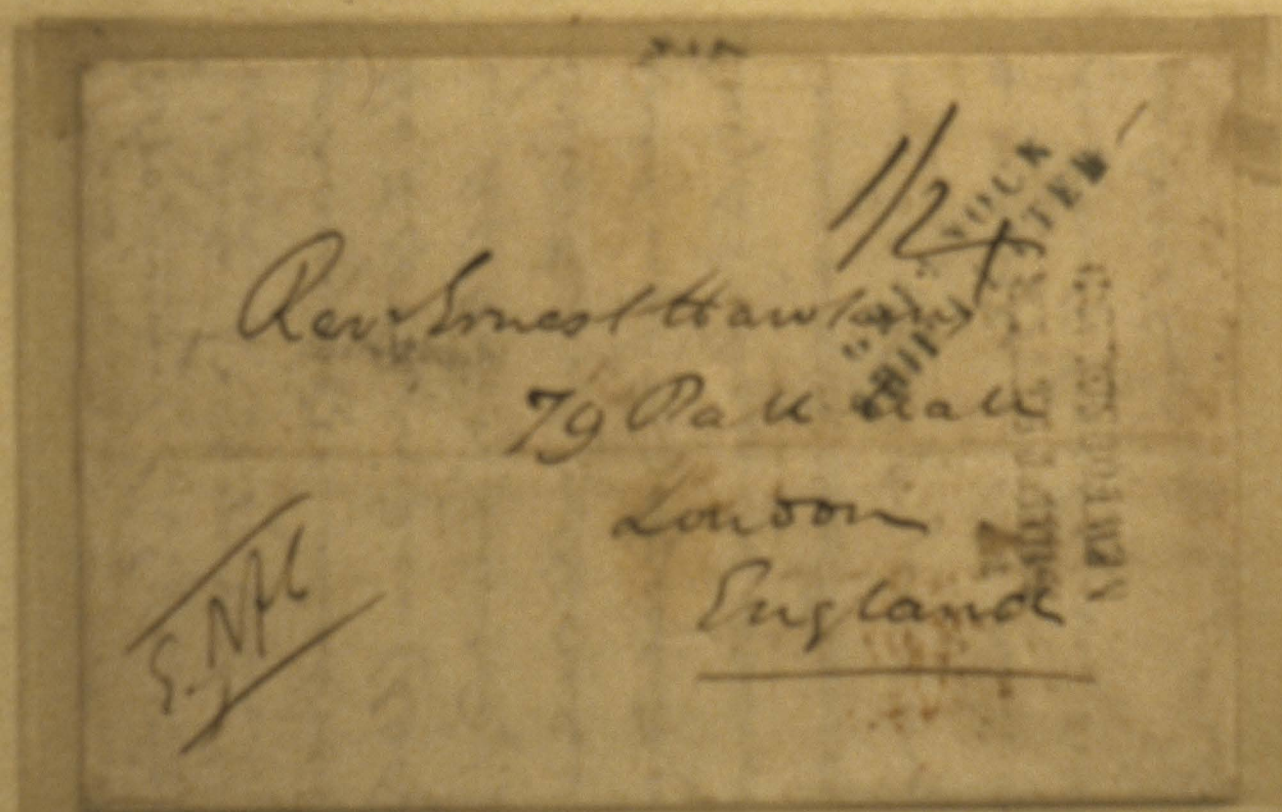 1/2
GREENOCK
SHIP LETTER
Rev Ernest Hawkins
79 Pall Mall
London
England
NEWFOUNDLAND